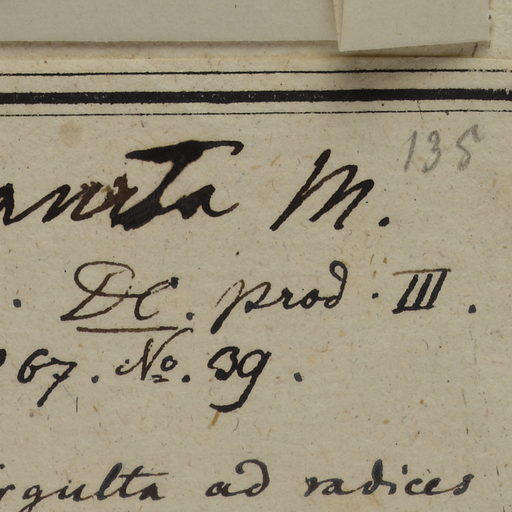 135
M.
. DC. prod. III.
67. No. 39.
rgulta ad radices